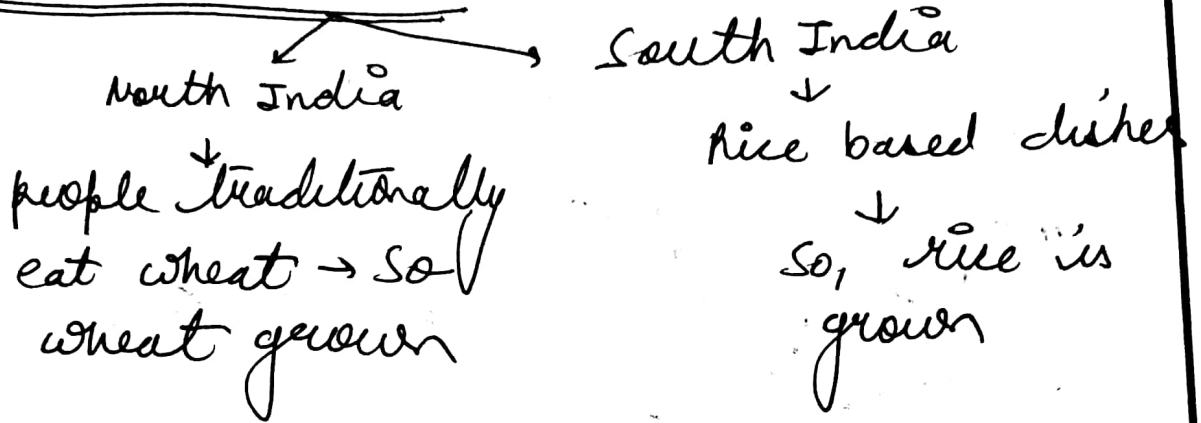 North India
↓
people traditionally
eat wheat → so
wheat grown
South India
↓
Rice based dishes
↓
So, rice is
grown